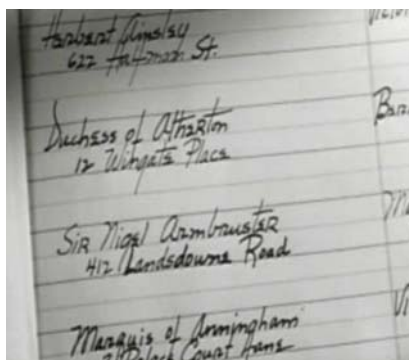 Herbert Ainsley
622 Hoffman St.
Duchess of Atherton
12 Wingate Place
Bar
Sir Nigel Armbruster
412 Landsdowne Road
Marquis of Anningham
Palace Court